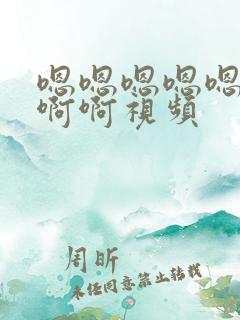 嗯嗯嗯嗯嗯
啊啊视频
周昕
未经同意禁止转载